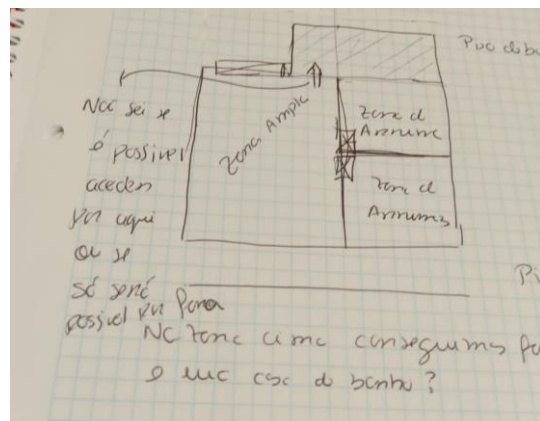 Piso de
Zona Ampla
Zona d
Arrumos
Zona d
Arrumos
Não sei se
é possível
aceder
por aqui
ou se
só será
possível por fora
Pi
Na zona cima conseguimos
e uma casa de banho?